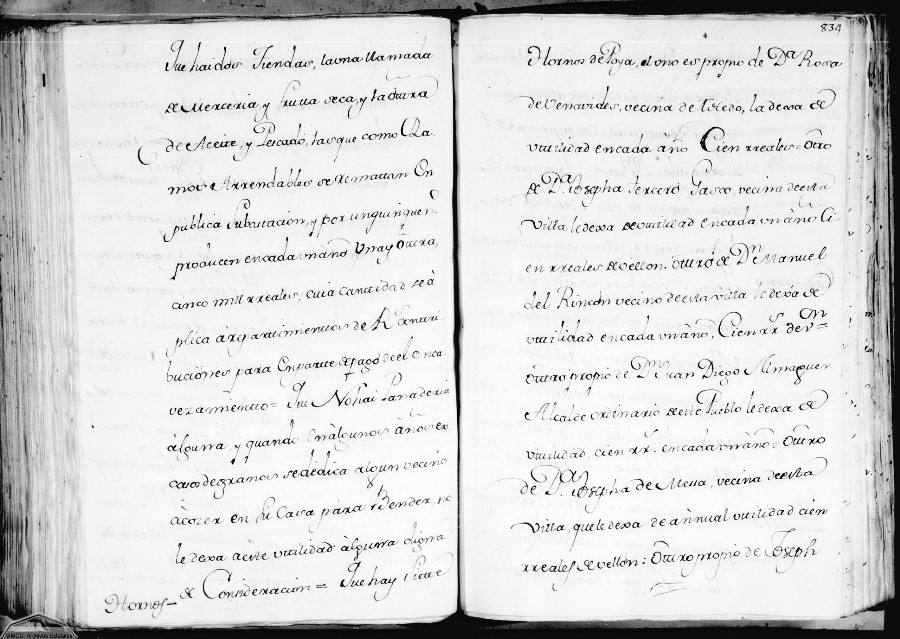 Que hai dos Tiendas, la una llamada
de Merceria, y fruta seca, y la otra
de Aceite, y Pescado, las que como Ra-
mos Arrendables se rematan en
publica subastacion, y por un quinquen.º
producen en cada un año Una y otra,
cinco mill rreales, cuia cantidad se à
plica a rrpartimientos de Rˢ contri-
buciónes para en parte de pago de el enca-
vezamiento = Que No hai Panaderia
àlguna, y quando en àlgunos años es
caso de granos se dèdica algun vecino
àcozer en su Casa pàra Bender, no
le dexa a este utilidad àlguna digna
de Consideracion = Que hay siete
Hornos =
834
Hornos de Poya, el uno es propio de Dª Rosa
de Venavides, vecina de toledo, la dexa de
utilidad en cada año Cien rreales: Otro
de Dª Josepha Tercero Gasco, vecina de esta
Villa le dexa de utilidad en cada un año Ci
en rreales de vellon: Ottro de Dⁿ Manuel
del Rincon vecino de esta villa le dexa de
utilidad en cada un año, Cien rrˢ de vⁿ=
Ottro propio de Dⁿ Juan Diego Almaguer
Alcalde ordinario de este Pueblo le dexa de
utilidad, cien rrˢ. en cada un año= Ottro
de Dª Josepha de Messa, vecina de esta
Villa, que le dexa de ànnual utilidad cien
rreales de vellon: Ottro propio de Joseph
©MCU. Archivos Estatales